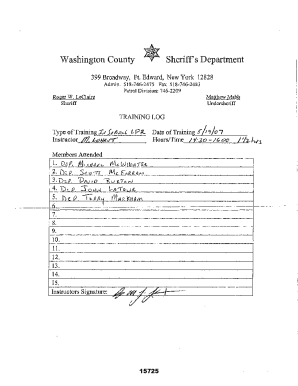 Washington County Sheriff's Department
399 Broadway, Ft. Edward, New York 12828
Admin: 518-746-2475 Fax: 518-746-2483
Patrol Division: 746-2203
Roger W. LeClaire Matthew Mabb
Sheriff Undersheriff
TRAINING LOG
Type of Training In Service CPR Date of Training 5/19/07
Instructor Hours/Time 1430-1600 1 1/2 hrs
Members Attended
1. Dep. Michael McWhorter
2. Dep. Scott McFarren
3. Dep. David Burton
4. Dep. John LaTour
5. Dep. Terry Markham
6.
7.
8.
9.
10.
11.
12.
13.
14.
15.
Instructors Signature:
15725